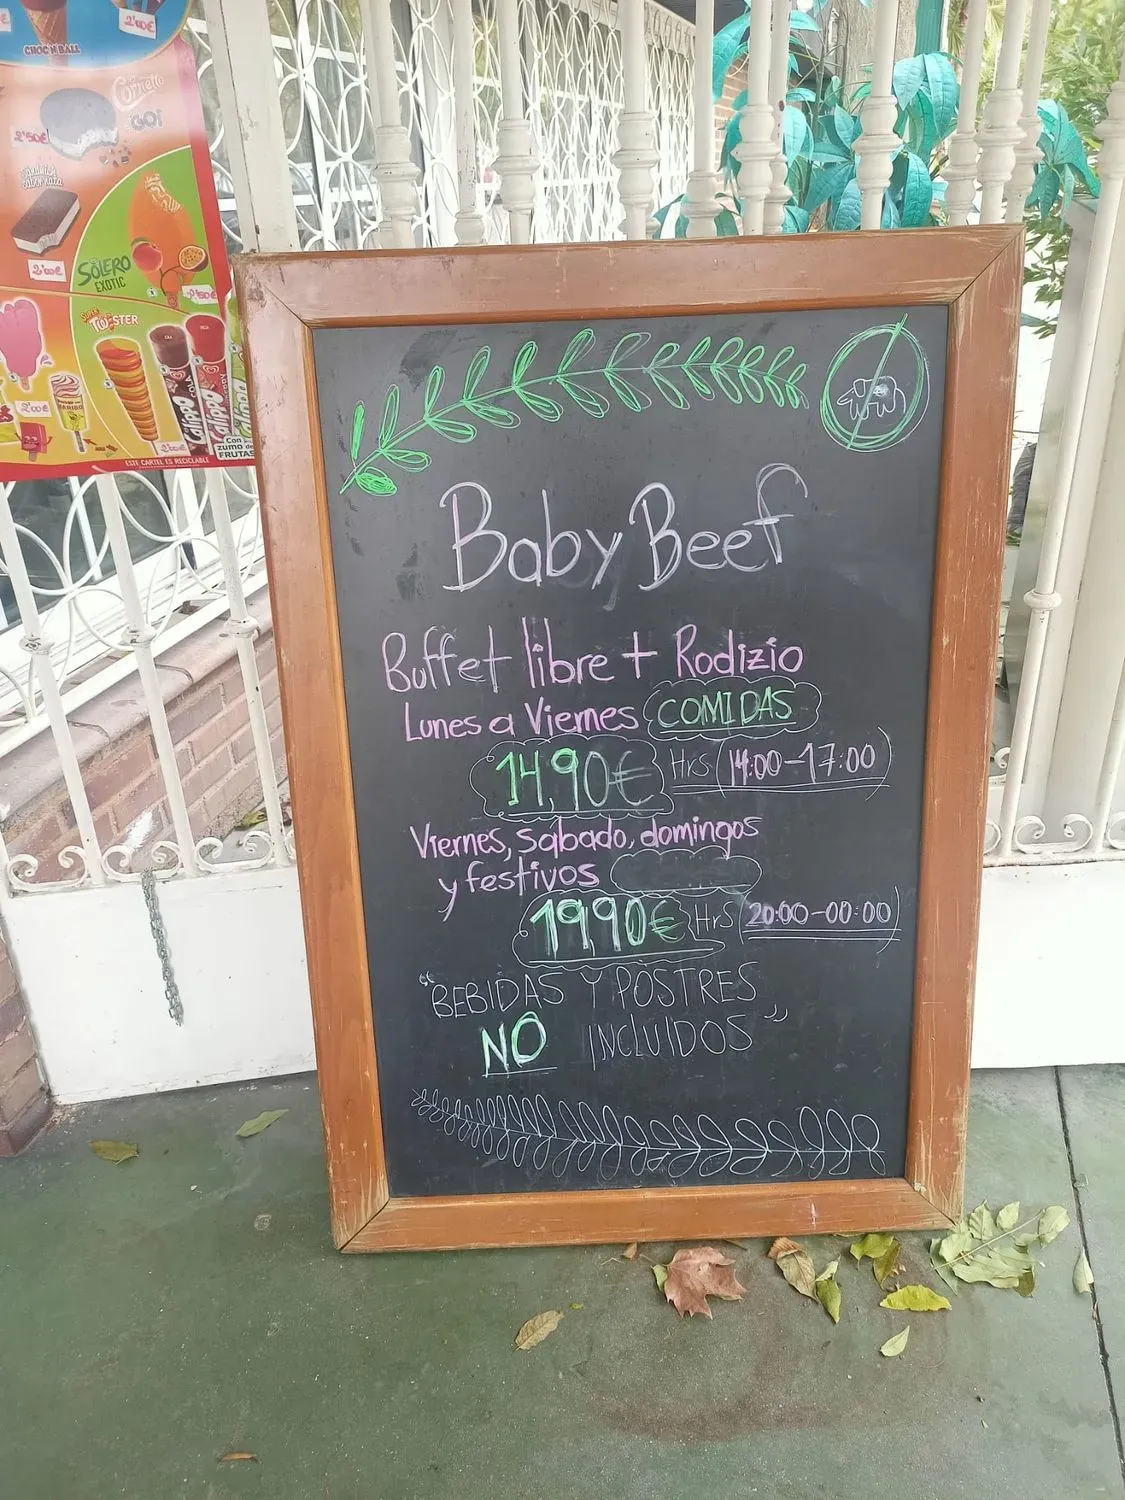 2'00€
CHOC'N'BALL
Cornetto
GO!
2'50€
2'00€
SOLERO
EXOTIC
SUPER
TWISTER
2'00€
HARIBO
COLA
Calippo
Calippo
Con
zumo de
FRUTAS
ESTE CARTEL ES RECICLABLE
Baby Beef
Buffet libre + Rodizio
Lunes a Viernes COMIDAS
14,90€ Hrs (14:00-17:00)
Viernes, sabado, domingos
y festivos
19,90€ Hrs (20:00-00:00)
"BEBIDAS Y POSTRES
NO INCLUIDOS"